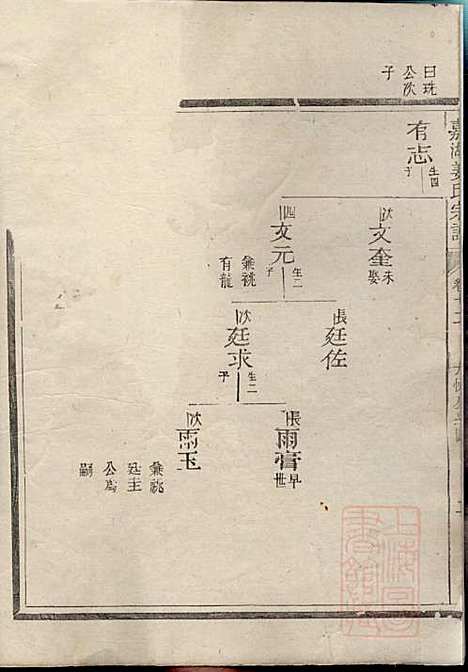 嘉湖姜氏宗譜
曰珗公次子
有志 生四子
次 文奎 未娶
四 文元 生二子
兼祧有龍
長 廷佐
次 廷求 生二子
長 雨膏 早世
次 雨玉
兼祧廷主公為嗣
上海圖書館藏